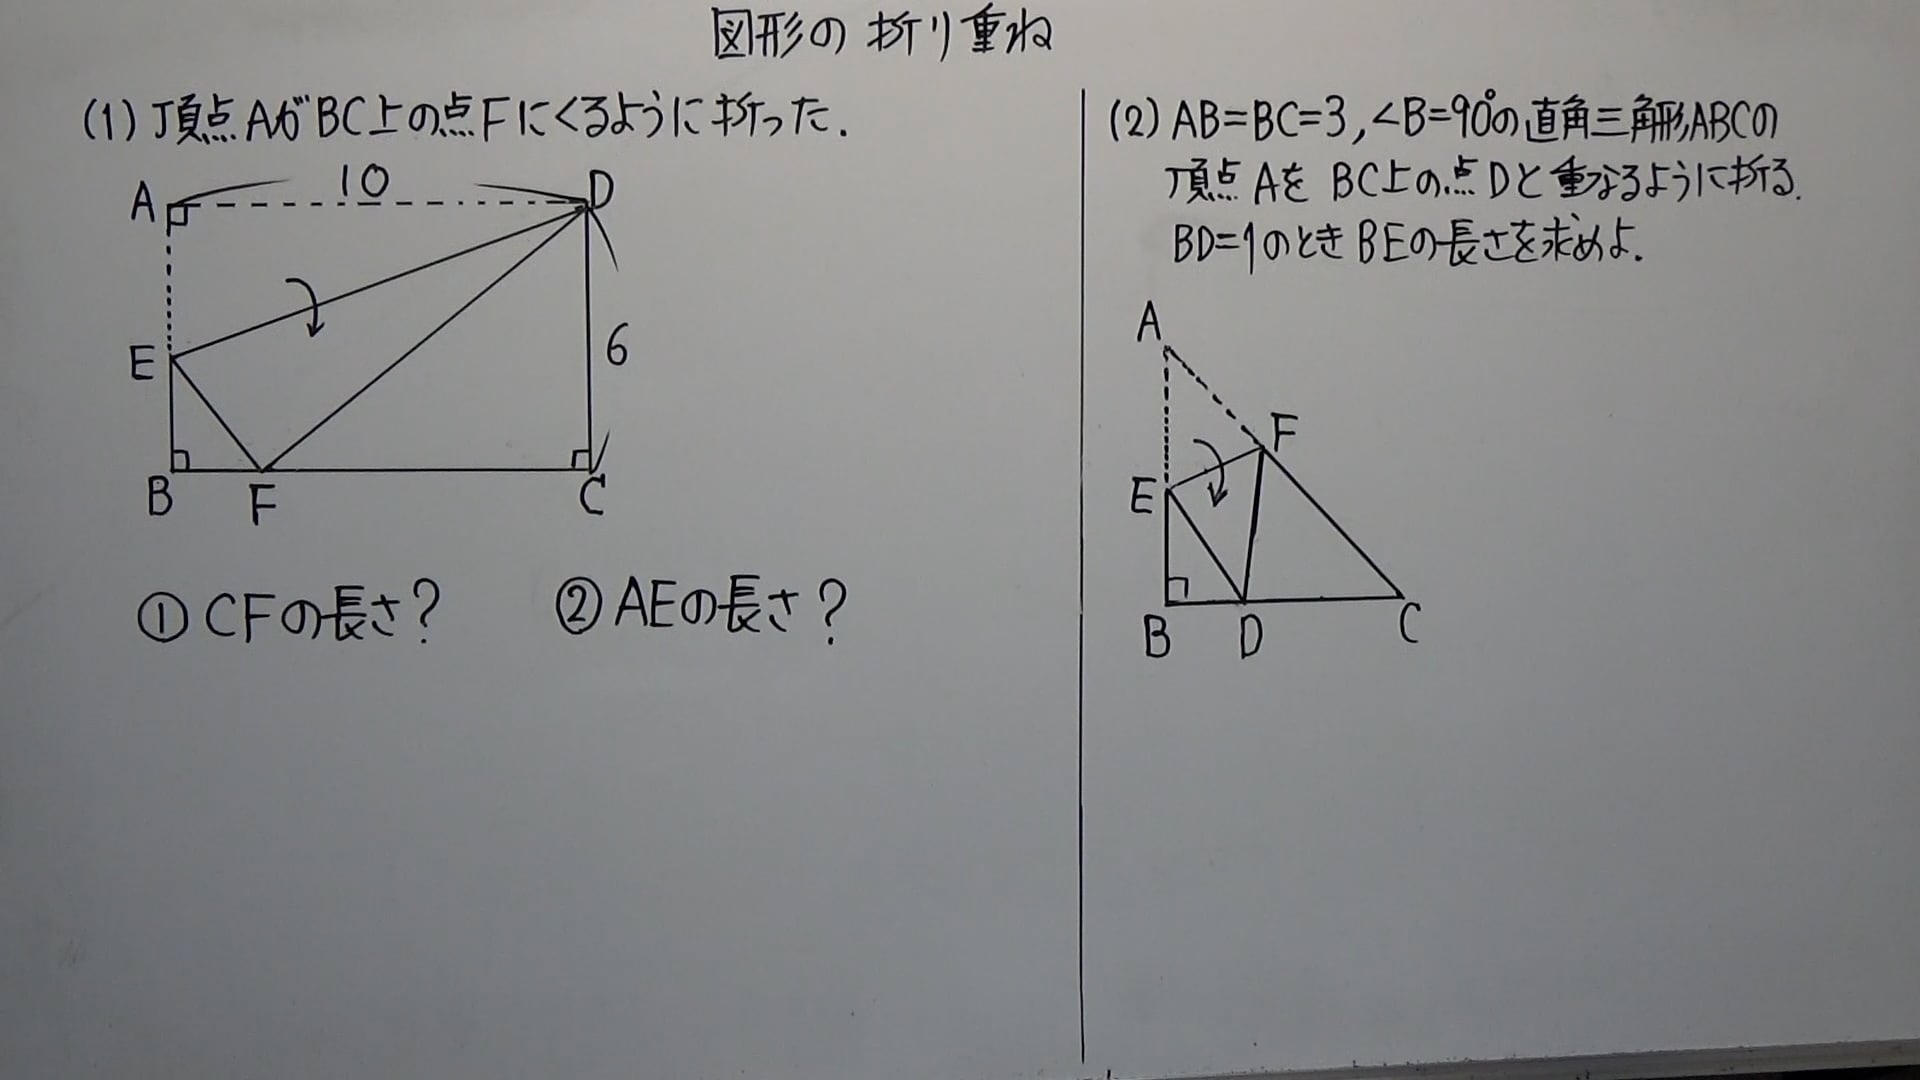 図形の折り重ね
(1) 頂点AがBC上の点Fにくるように折った.
A
10
D
E
6
B
F
C
① CFの長さ?
② AEの長さ?
(2) AB=BC=3, ∠B=90°の直角三角形ABCの
頂点AをBC上の点Dと重なるように折る.
BD=1のときBEの長さを求めよ.
A
F
E
B
D
C